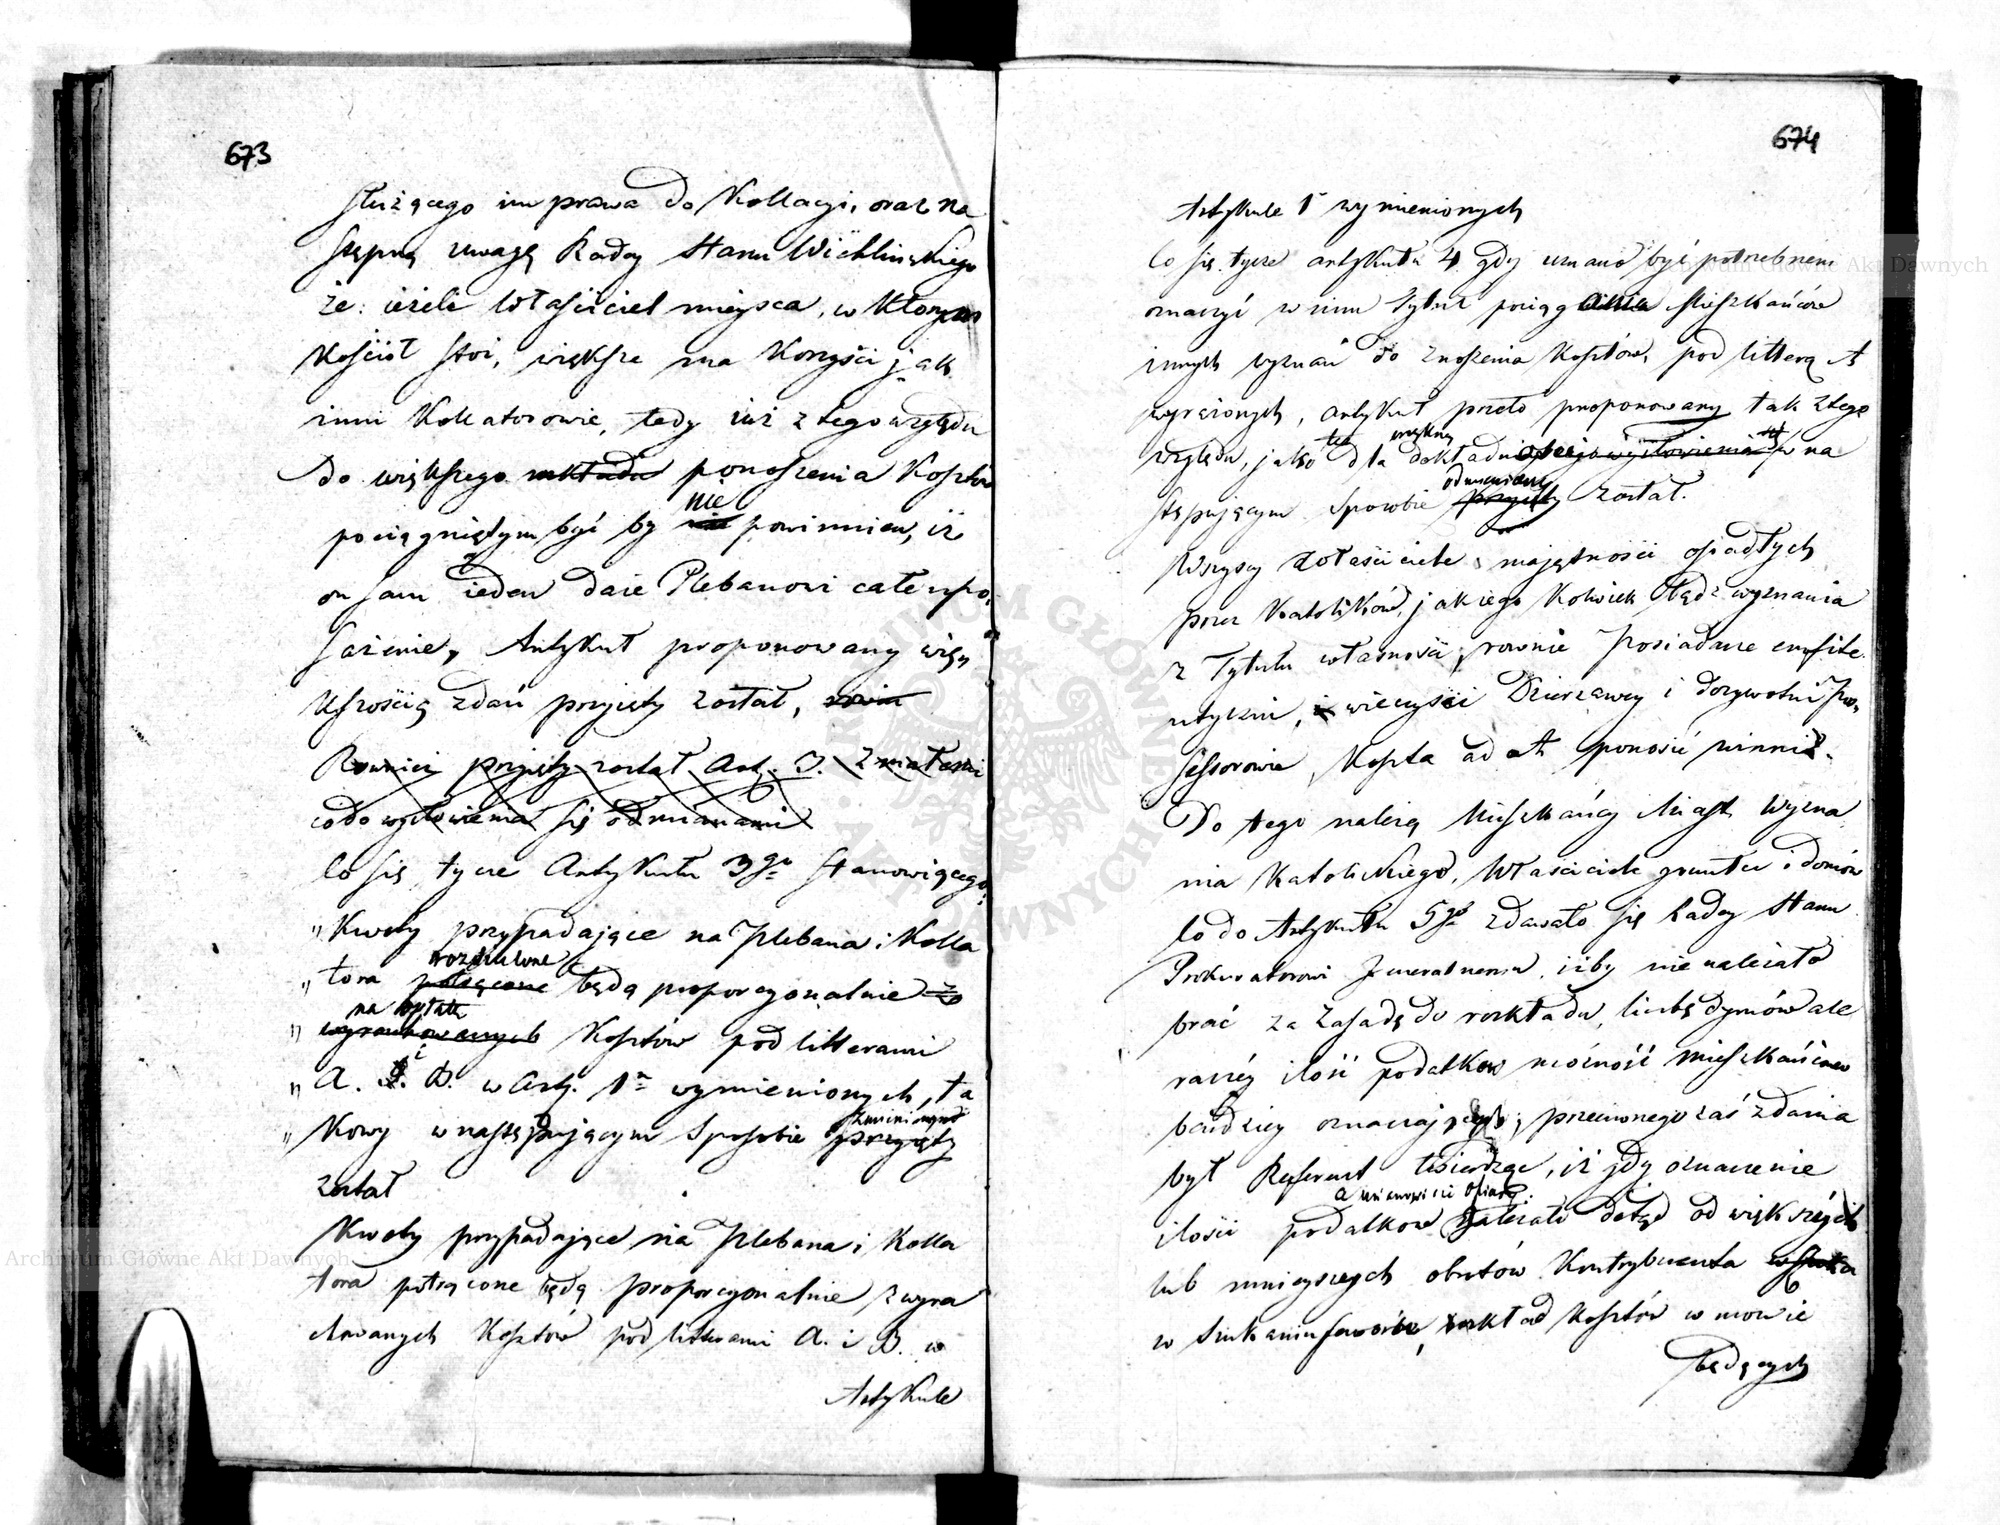 673
służącego im prawa do Kollacyi, oraz na
stępną uwagę Radcy Stanu Wichlińskiego
że: ieżeli właściciel mieysca, w którym
Kościół stoi, większe ma Korzyści jak
inni Kollatorowie, tedy iuż z tego względu
do większego nakładu ponoszenia Kosztów
nie
pociągniętym być by nie powinien, iż
on sam ieden daie Plebanowi całe upo
sażenie, Artykuł proponowany więk
szością zdań przyięty został,
Rownież przyięty został Art. 3. z małemi
co do wysłowienia się odmianami
Co się tycze Artykułu 3go stanowiącego,
„Kwoty przypadaiące na Plebana i Kolla
rozdzielone
„tora potrącone będą proporcyonalnie z
na opłatę
„wyrachowanych Kosztów pod litterami
„A. i B. w Art. 1m wymienionych, ta
zmienionym
„Kowy w następuiącym sposobie przyięty
został
Kwoty przypadaiące na Plebana i Kolla
tora potrącone będą proporcyonalnie z wyra
chowanych Kosztów pod litterami A. i B. w
Artykule
674
Artykule 1 wymienionych
Co się tycze artykułu 4. gdy uznano być potrzebnem
oznaczyć w nim tytuł pociągania Mieszkańców
innych wyznań do znoszenia Kosztów, pod litterą A
wyrażonych, artykuł przeto proponowany tak z tego
względu, jako też dla dokładnieyszego wysłowienia w na
odmieniony
stępuiącym sposobie przyięty został.
Wszyscy właściciele maiętności osiadłych
przez Katolików, jakiego kolwiek bądź wyznania
z Tytułu własności, rownie posiadacze emfite
utyczni, wieczyści Dzierżawcy i dożywotni pos
sessorowie, Koszta ad A. ponosić winni.
Do tego należą Mieszkańcy Miast Wyzna
nia Katolickiego, Właściciele gruntu i domów
Co do Artykułu 5go zdawało się Radcy Stanu
Prokuratorowi Jeneralnemu, iżby nie należało
brać za zasadę do rozkładu, liczbę dymów ale
raczéy ilość podatków możność mieszkańców
bardziey oznaczaiących; przeciwnego zaś zdania
był Referent twierdząc, iż gdy oznaczenie
a mianowicie Ofiary.
ilości podatków zależało dotąd od większych
lub mnieyszych obrotów Kontrybuenta
w szukaniu faworów, rozkład Kosztów w mowie
będących